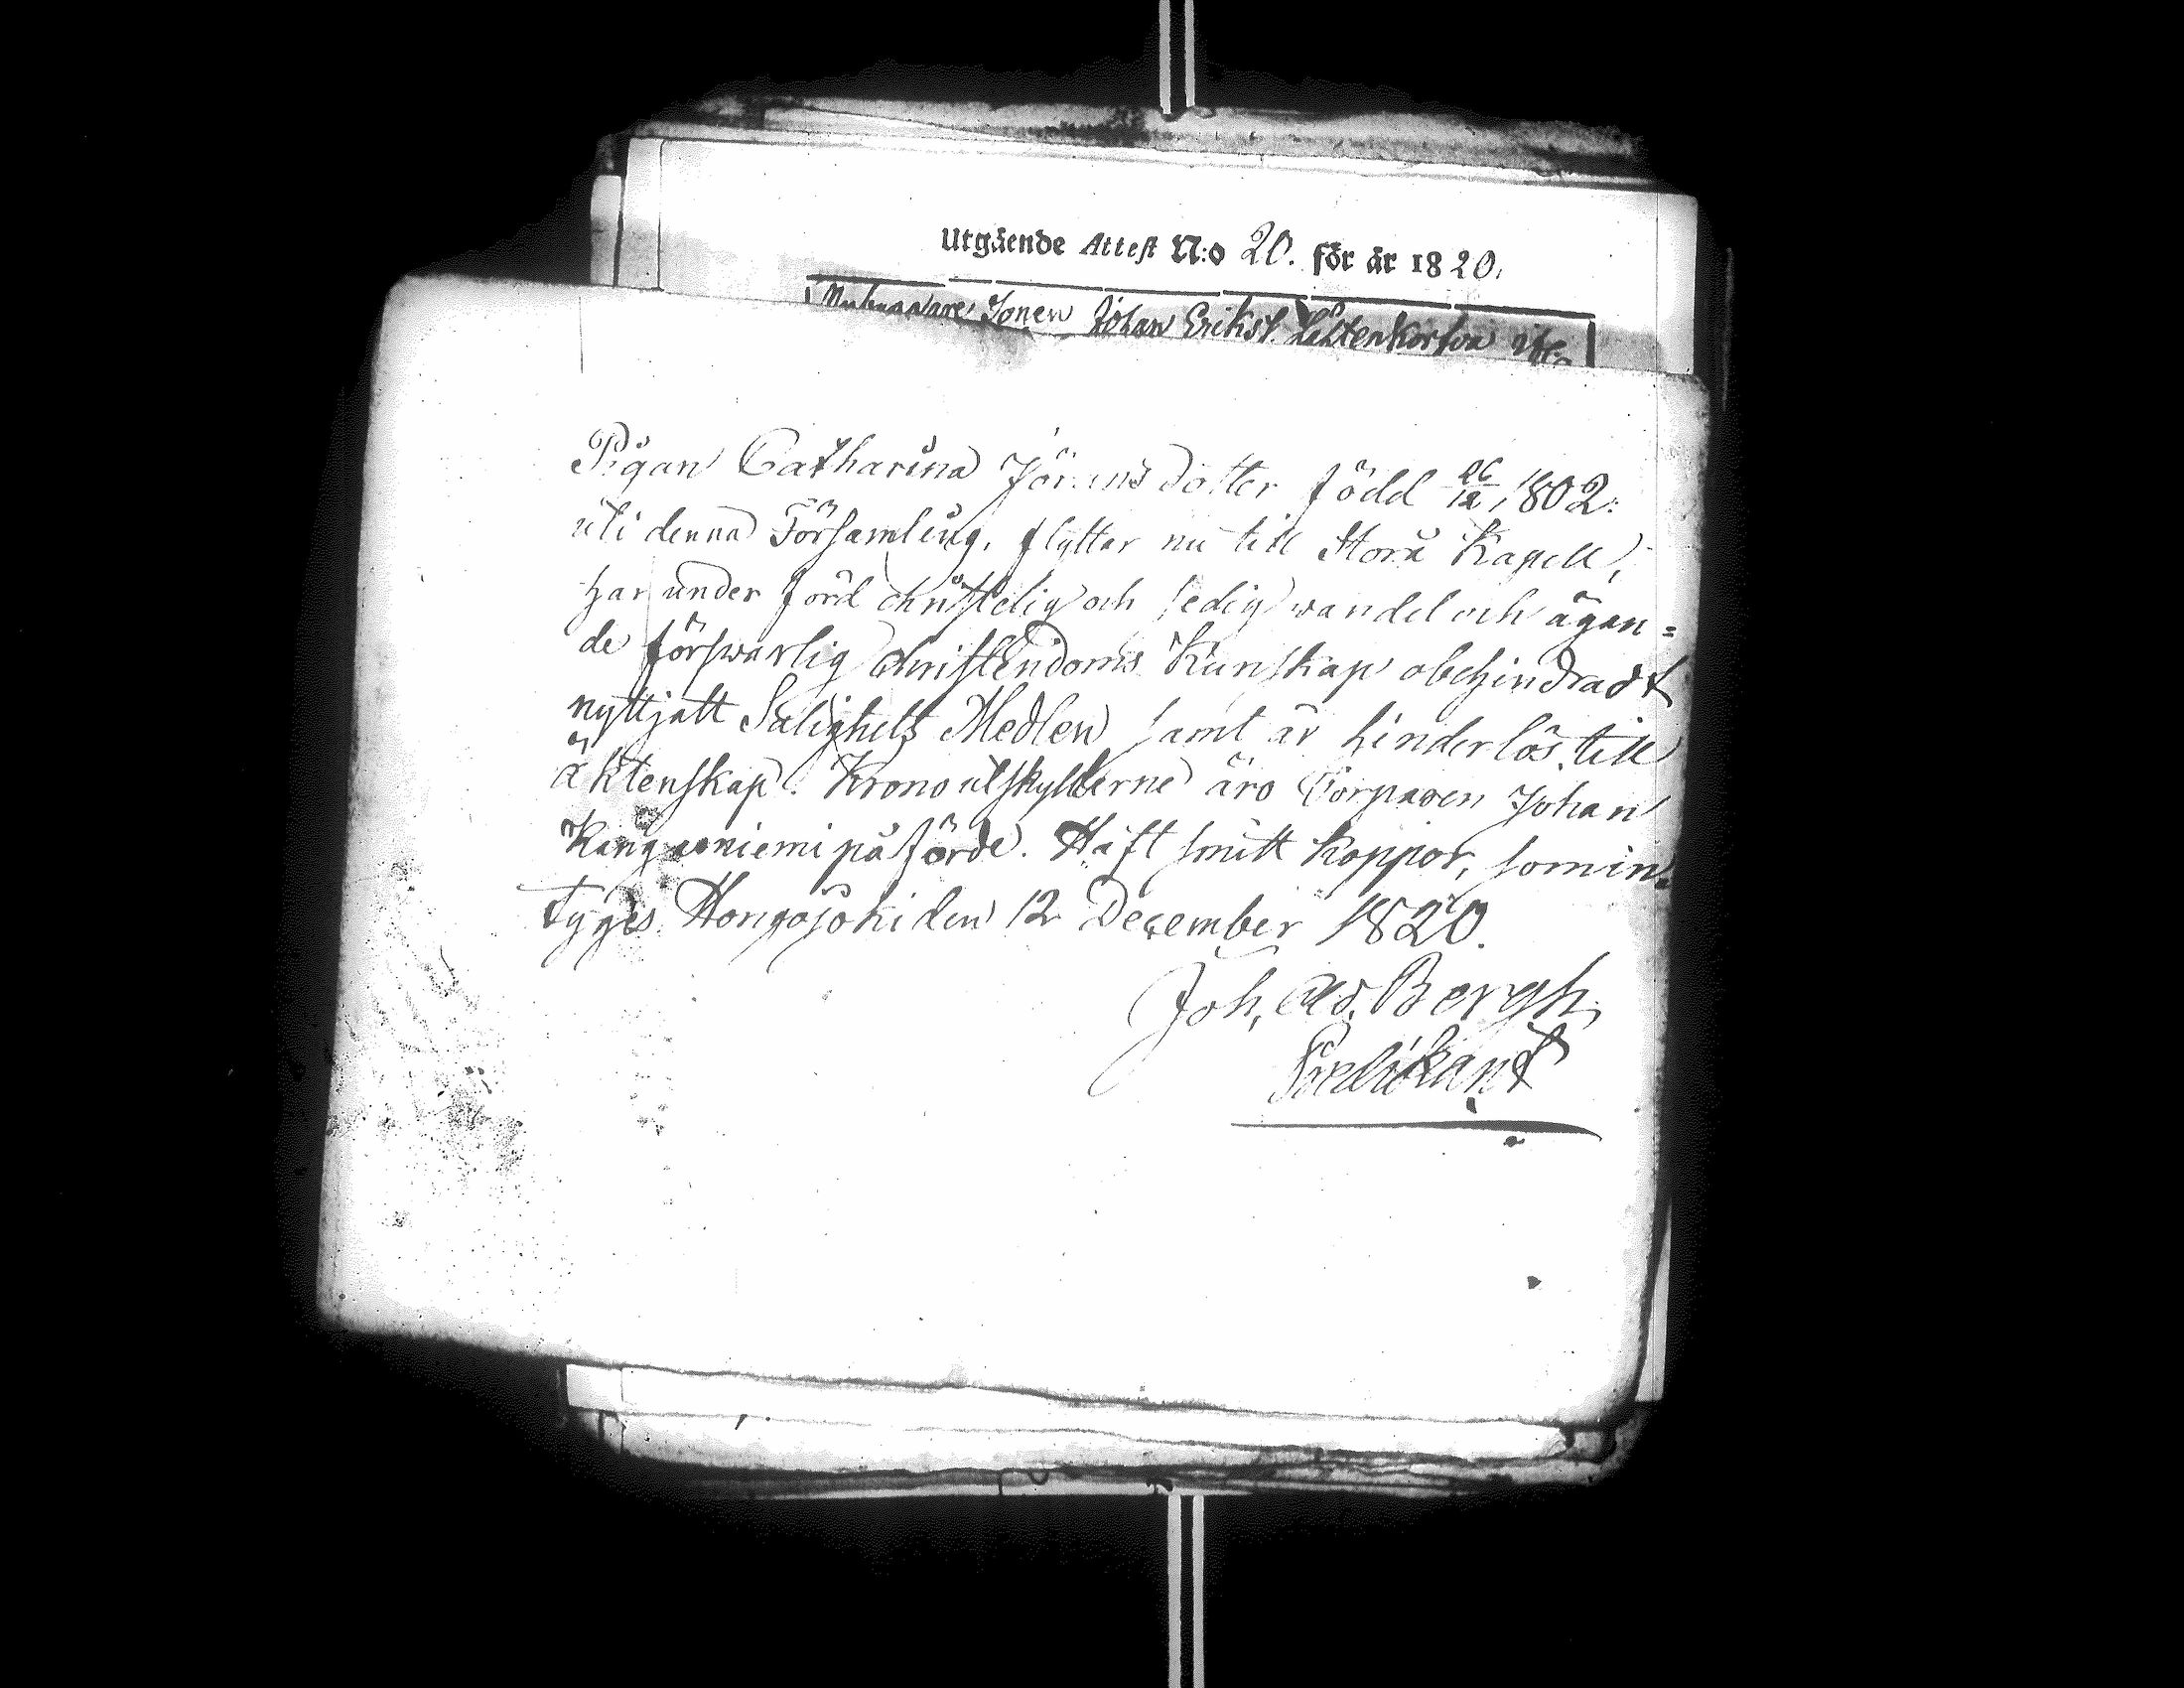 Utgående Attest N:o 20. för år 1820.
Johan Eriks.
Pigan Catharina Jöransdotter född 26/12 1802.
uti denna Församling, flyttar nu till Storå Kapell,
har under förd christelig och sedig wandel och ägan=
de förswarlig Christendoms Kunskap obehindradt
nyttjatt Salighets Medlen samt är hinderlös till
äktenskap. Krono utskylderne äro Torparen Johan
Kangasniemi påförde. Haft smitt koppor, som in-
tyges Hongojoki den 12 December 1820.
Joh. Ad. Bergh
Predikant